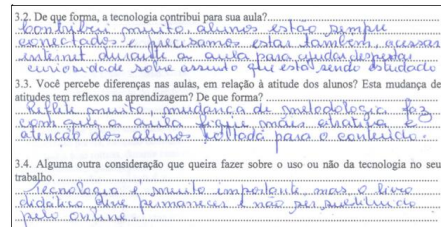 3.2. De que forma, a tecnologia contribui para sua aula?
Contribui muito, alunos estão sempre
conectados e precisamos estar também, acessar
internet durante a aula para ajudar despertar
curiosidade sobre assunto que está sendo estudado
3.3. Você percebe diferenças nas aulas, em relação à atitude dos alunos? Esta mudança de
atitudes tem reflexos na aprendizagem? De que forma?
Reflete muito, mudança de metodologia faz
com que a aula fique mais atrativa e
atenção dos alunos voltada para o conteúdo.
3.4. Alguma outra consideração que queira fazer sobre o uso ou não da tecnologia no seu
trabalho.
Tecnologia é muito importante mas o livro
didático deve permanecer e não ser substituido
pelo online.